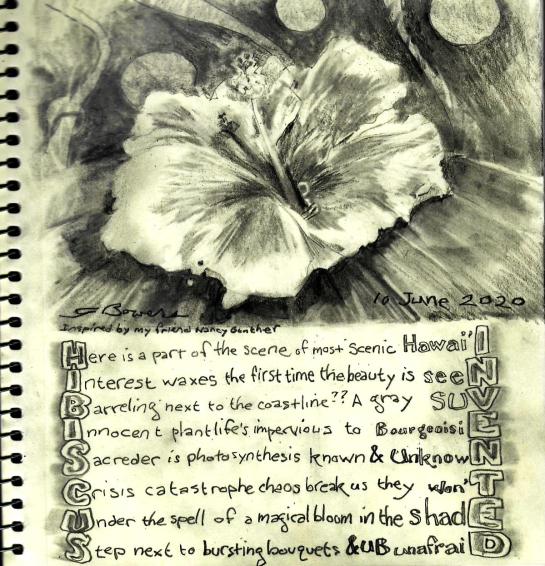 J Bowers
10 June 2020
Inspired by my friend Nancy Gunther
Here is a part of the scene of most scenic Hawai'I
Interest waxes the first time the beauty is seeN
Barreling next to the coastline?? A gray SUV
Innocent plantlife's impervious to BourgeoisiE
Sacreder is photosynthesis known & UnknowN
Crisis catastrophe chaos break us they won'T
Under the spell of a magical bloom in the ShadE
Step next to bursting bouquets & UB unafraiD